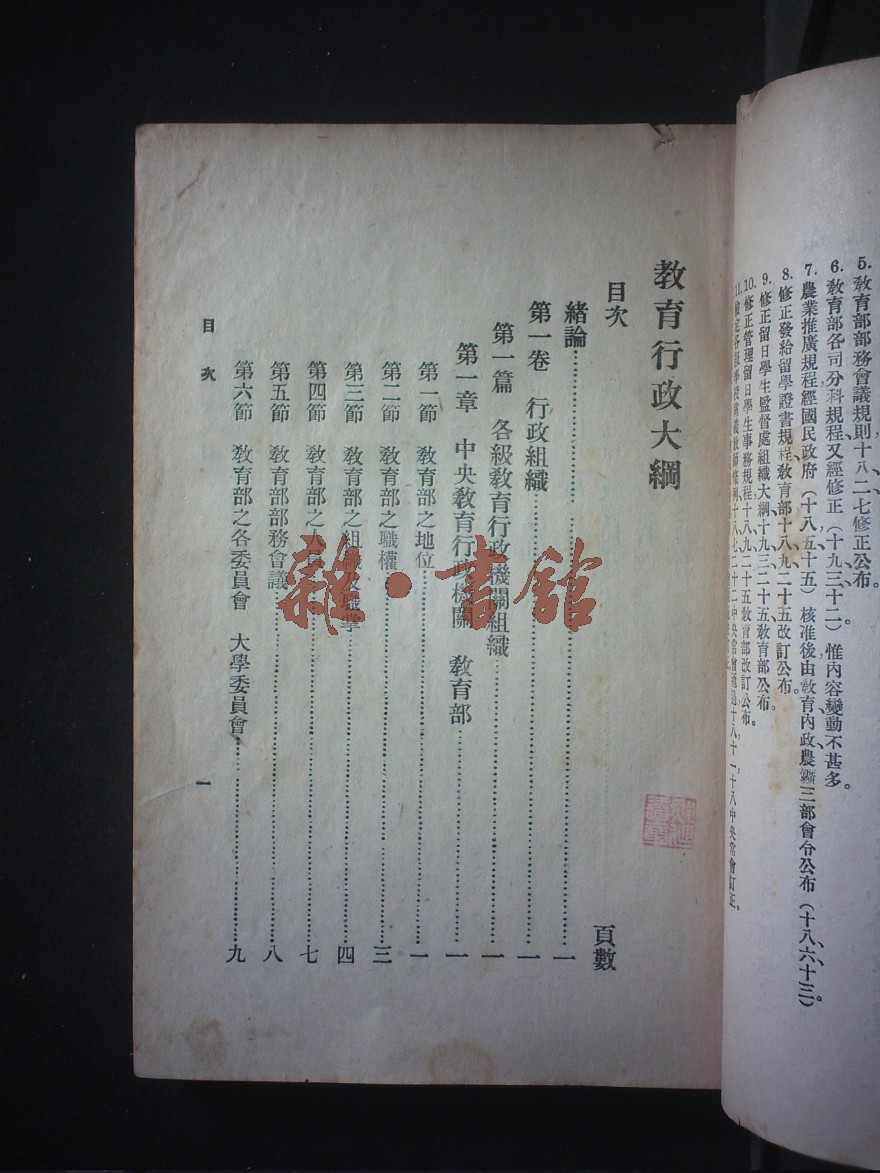 5. 教育部部務會議規則十八、二、七、修正公布。
6. 教育部各司分科規程又經修正（十九、三、十二）。惟內容變動不甚多。
7. 農業推廣規程經國民政府（十八、五、十五）核准後由教育內政農鑛三部會令公布（十八、六、十三）。
8. 修正發給留學證書規程教育部十八、九、二十五改訂公布。
9. 修正留日學生監督處組織大綱十九、三、二十五教育部公布。
10. 修正管理留日學生事務規程十八、九、二十五教育部改訂公布。
教育行政大綱
目次 頁數
緒論 一
第一卷 行政組織 一
第一篇 各級教育行政機關組織 一
第一章 中央教育行政機關 教育部 一
第一節 教育部之地位 一
第二節 教育部之職權 三
第三節 教育部之組織及職掌 四
第四節 教育部之人員 七
第五節 教育部部務會議 八
第六節 教育部之各委員會 大學委員會 九
目次 一
雜·書館